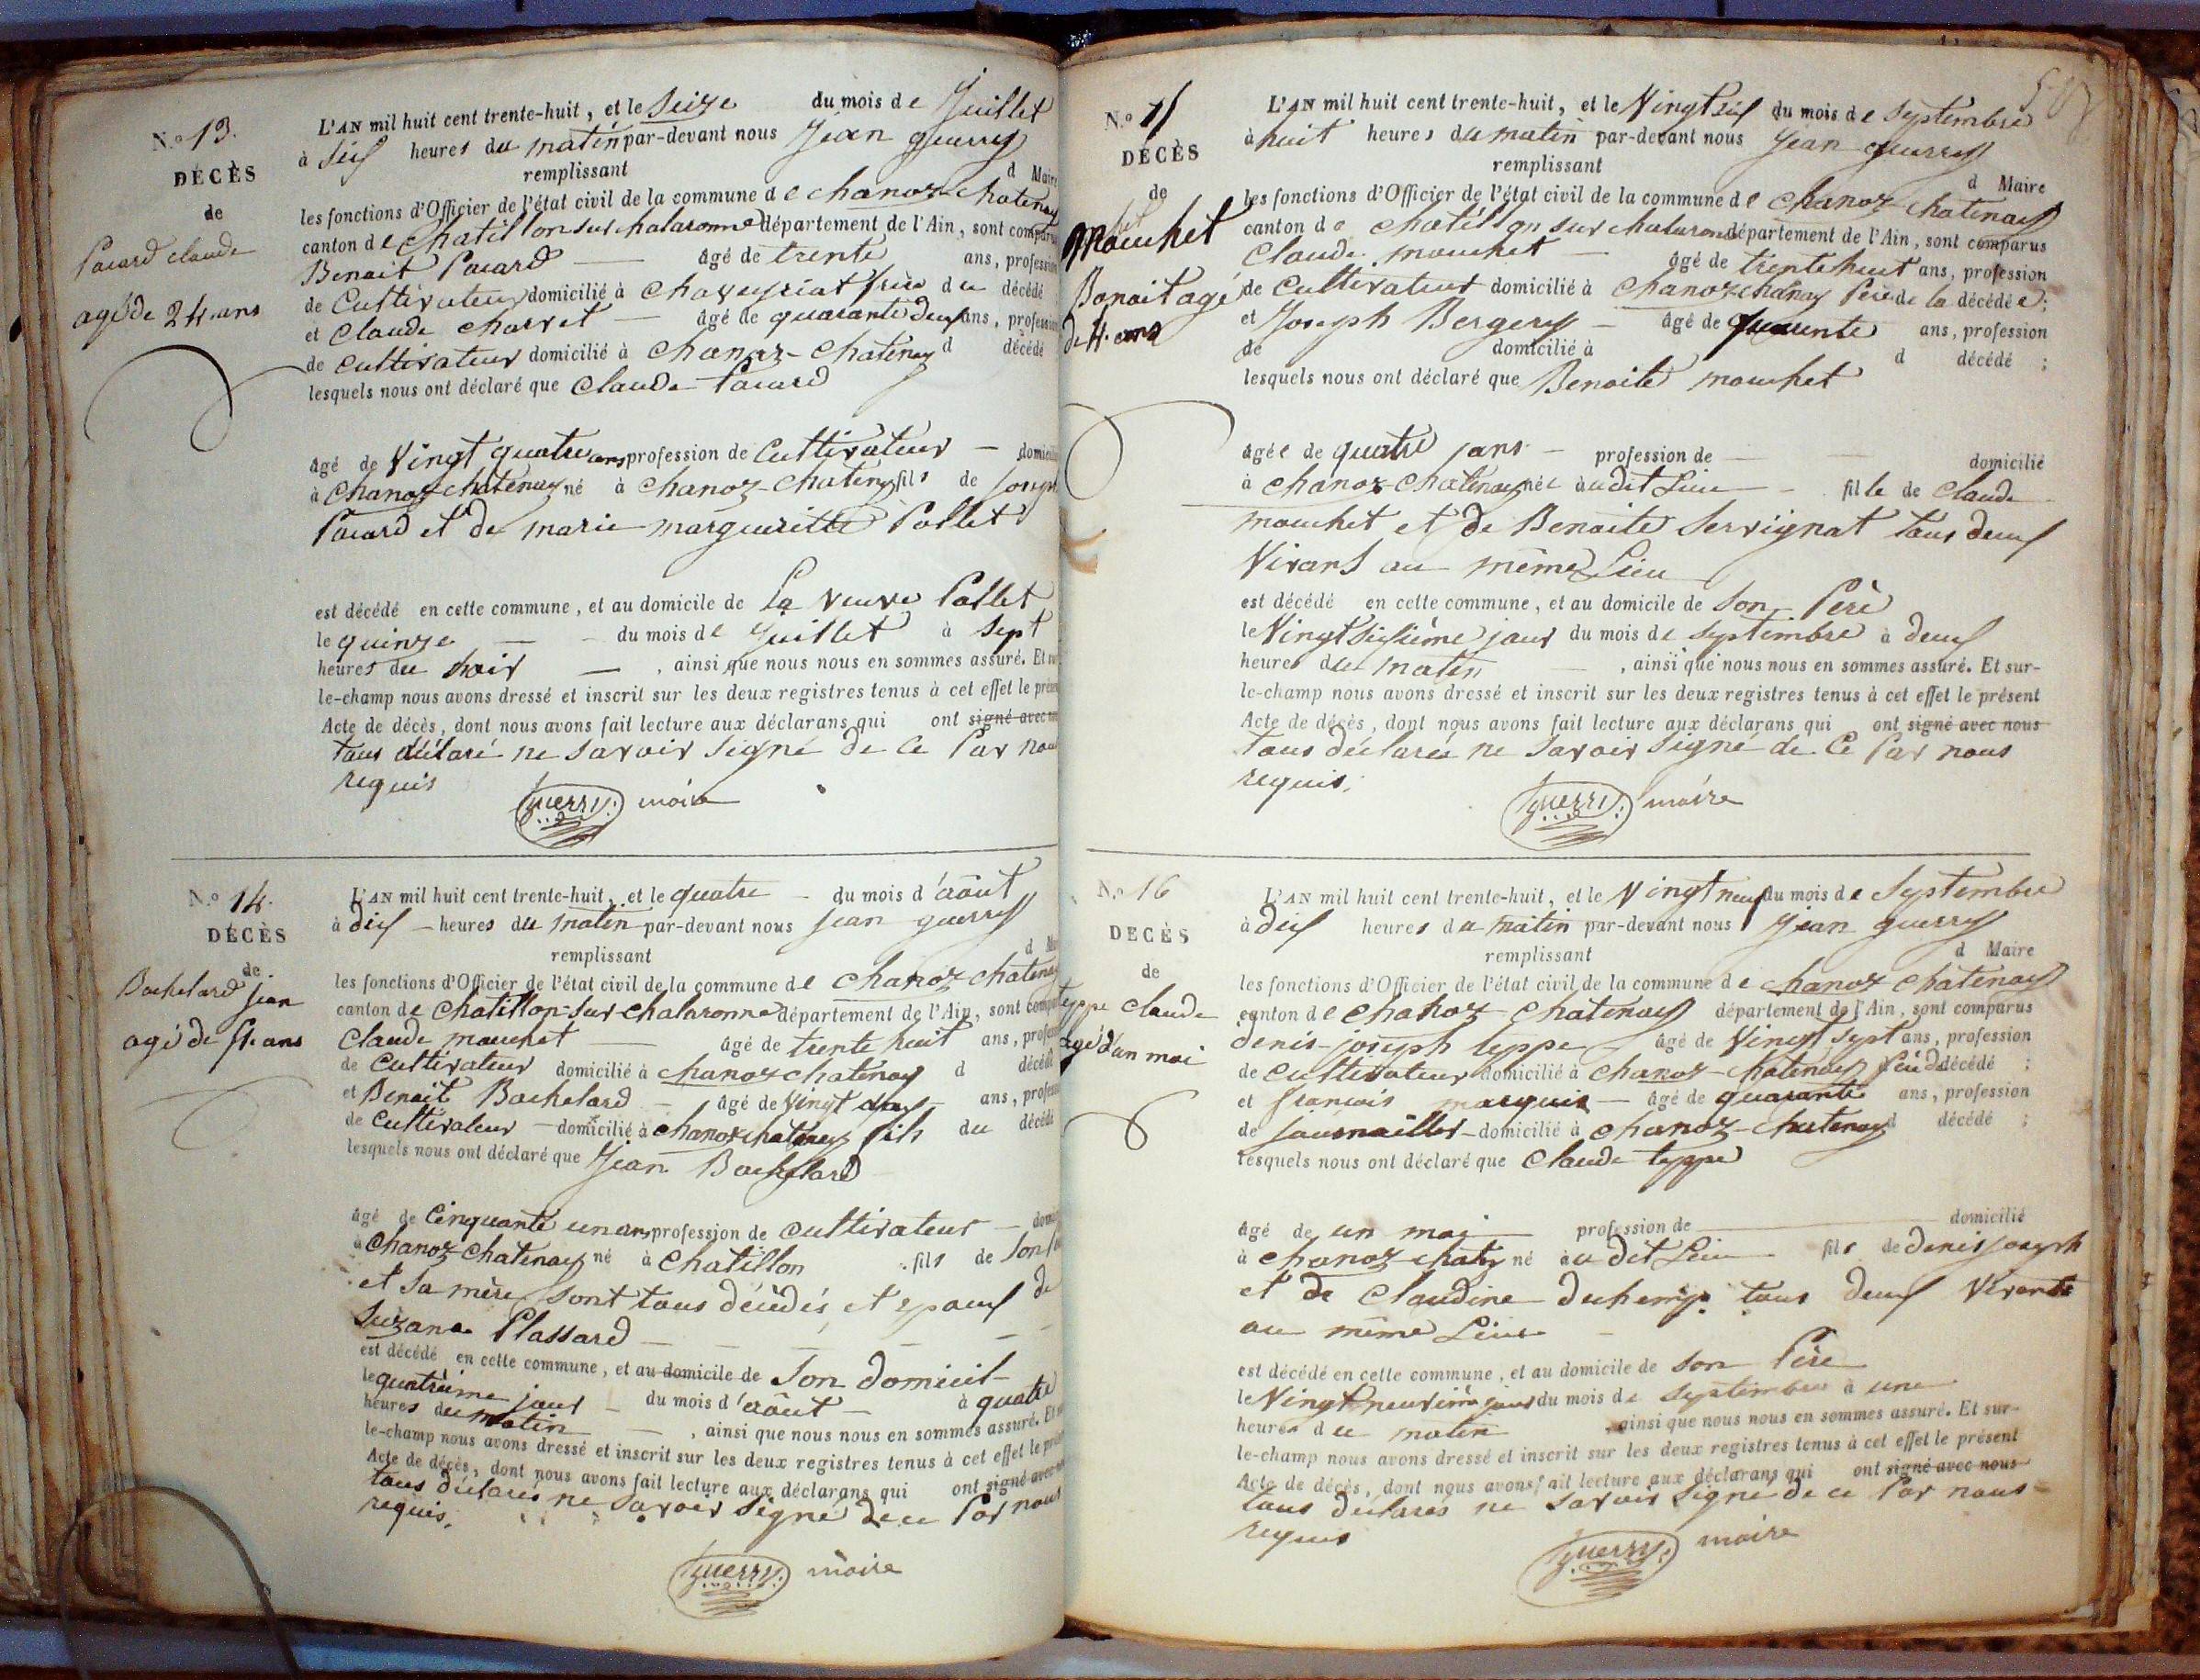 N.º 13.
DÉCÈS
de
Pacard claude
agé de 24 ans
L'AN mil huit cent trente-huit, et le seize du mois de Juillet
à six heures du matin par-devant nous Jean guerry
remplissant d Maire
les fonctions d'Officier de l'état civil de la commune de chanoz-chatenay
canton de chatillon sur chalaronne département de l'Ain, sont comparus
Benoit Pacard âgé de trente ans, profession
de Cultivateur domicilié à chaveyriat frère du décédé
et claude charvet âgé de quarante deux ans, profession
de cultivateur domicilié à chanoz-chatenay d décédé
lesquels nous ont déclaré que claude Pacard
âgé de Vingt quatre ans profession de Cultivateur domicilié
à chanoz chatenay né à chanoz-chatenay fils de Joseph
Pacard et de marie margueritte Pollet
est décédé en cette commune, et au domicile de La veuve Pollet
le quinze du mois de Juillet à sept
heures du soir, ainsi que nous nous en sommes assuré. Et sur
le-champ nous avons dressé et inscrit sur les deux registres tenus à cet effet le présent
Acte de décès, dont nous avons fait lecture aux déclarans qui ont signé avec nous
tous déclaré ne savoir signé de ce Par nous
requis
guerry maire
N.º 14.
DÉCÈS
de
Bachelard jean
agé de 51 ans
L'AN mil huit cent trente-huit, et le quatre du mois d'août
à dix heures du matin par-devant nous jean guerry
remplissant d Maire
les fonctions d'Officier de l'état civil de la commune de chanoz chatenay
canton de chatillon-sur-chalaronne département de l'Ain, sont comparus
Claude mouchet âgé de trente huit ans, profession
de Cultivateur domicilié à chanoz chatenay d décédé
et Benoit Bachelard âgé de vingt ans, profession
de Cultivateur domicilié à chanoz chatenay fils du décédé
lesquels nous ont déclaré que Jean Bachelard
âgé de Cinquante un ans profession de cultivateur domicilié
à chanoz chatenay né à chatillon fils de son
et sa mère sont tous décédés et epoux de
Suzane Plassard
est décédé en cette commune, et au domicile de son domicil
le quatrième jour du mois d'août à quatre
heures du matin, ainsi que nous nous en sommes assuré. Et
le-champ nous avons dressé et inscrit sur les deux registres tenus à cet effet le présent
Acte de décès, dont nous avons fait lecture aux déclarans qui ont signé avec
tous déclarés ne savoir signé de ce Par nous
requis.
guerry maire
N.º 15
DÉCÈS
de
mouchet
Benoit agé
de 4 ans
L'AN mil huit cent trente-huit, et le Vingt six du mois de septembre
à huit heures du matin par-devant nous Jean guerry
remplissant d Maire
les fonctions d'Officier de l'état civil de la commune de chanoz chatenay
canton de chatillon sur chalaronne département de l'Ain, sont comparus
Claude mouchet âgé de trente huit ans, profession
de Cultivateur domicilié à chanoz-chanay Père de la décédée;
et Joseph Bergery âgé de quarente ans, profession
de domicilié à d décédé ;
lesquels nous ont déclaré que Benoite mouchet
âgée de quatre ans profession de domicilié
à chanoz-chatenay née audit Lieu fille de Claude
mouchet et de Benoite Servignat tous deux
Vivans au même Lieu
est décédé en cette commune, et au domicile de son Père
le Vingt sixsième jour du mois de septembre à deux
heures du matin, ainsi que nous nous en sommes assuré. Et sur-
le-champ nous avons dressé et inscrit sur les deux registres tenus à cet effet le présent
Acte de décès, dont nous avons fait lecture aux déclarans qui ont signé avec nous
tous déclarés ne savoir signé de Ce Par nous
requis.
guerry maire
N.º 16
DÉCÈS
de
teppe claude
agé d'un moi
L'AN mil huit cent trente-huit, et le Vingt neuf du mois de Septembre
à dix heures du matin par-devant nous Jean guerry
remplissant d Maire
les fonctions d'Officier de l'état civil de la commune de chanoz chatenay
canton de chanoz chatenay département de l'Ain, sont comparus
denis-joseph teppe âgé de Vingt sept ans, profession
de cultivateur domicilié à chanoz-chatenay Père du décédé ;
et francois marquis âgé de quarante ans, profession
de journaillier domicilié à chanoz-chatenay d décédé ;
lesquels nous ont déclaré que Claude teppe
âgé de un moi profession de domicilié
à chanoz chatey né audit Lieu fils de denis joseph
et de Claudine duchemp tous deux Vivants
au même Lieu
est décédé en cette commune, et au domicile de son Père
le Vingt neuvième jour du mois de septembre à une
heures du matin ainsi que nous nous en sommes assuré. Et sur-
le-champ nous avons dressé et inscrit sur les deux registres tenus à cet effet le présent
Acte de décès, dont nous avons fait lecture aux déclarans qui ont signé avec nous
tous déclarés ne savoir signé de ce Par nous
requis
guerry maire